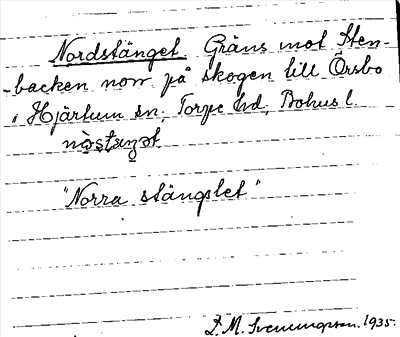 Nordstänget. Gräns mot Sten-
-backen norr på skogen till Orsbo
i Hjärtum sn, Torpe hd, Bohus l.
"Norra stängslet"
P. M. Svenungsson. 1935.